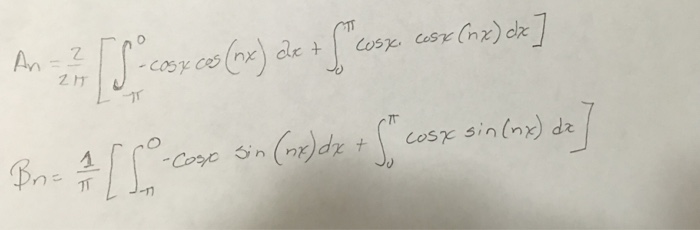 An = 2/2π [∫_{-π}^{0} -cosx cos(nx) dx + ∫_{0}^{π} cosx. cosx(nx) dx]
Bn = 1/π [∫_{-π}^{0} -cosx sin(nx) dx + ∫_{0}^{π} cosx sin(nx) dx]